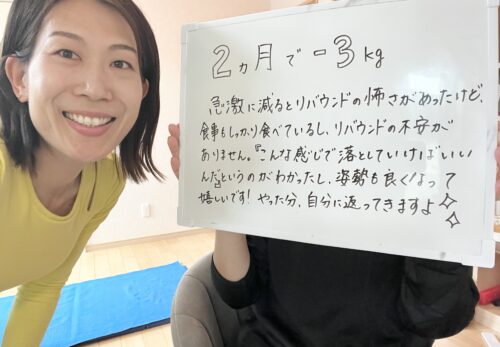 2ヵ月で-3kg
急激に減るとリバウンドの怖さがあったけど、
食事もしっかり食べているし、リバウンドの不安が
ありません。『こんな感じで落としていけばいい
んだ』というのがわかったし、姿勢も良くなって
嬉しいです！やった分、自分に返ってきますよ